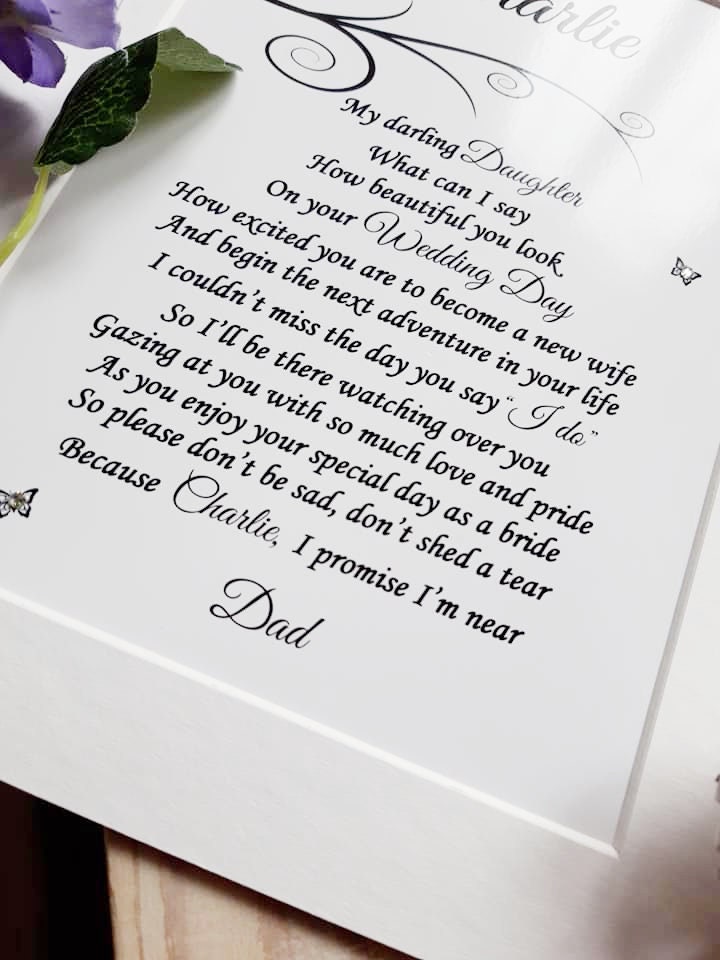 Charlie
My darling Daughter
What can I say
How beautiful you look
On your Wedding Day
How excited you are to become a new wife
And begin the next adventure in your life
I couldn't miss the day you say "I do"
So I'll be there watching over you
Gazing at you with so much love and pride
As you enjoy your special day as a bride
So please don't be sad, don't shed a tear
Because Charlie, I promise I'm near
Dad